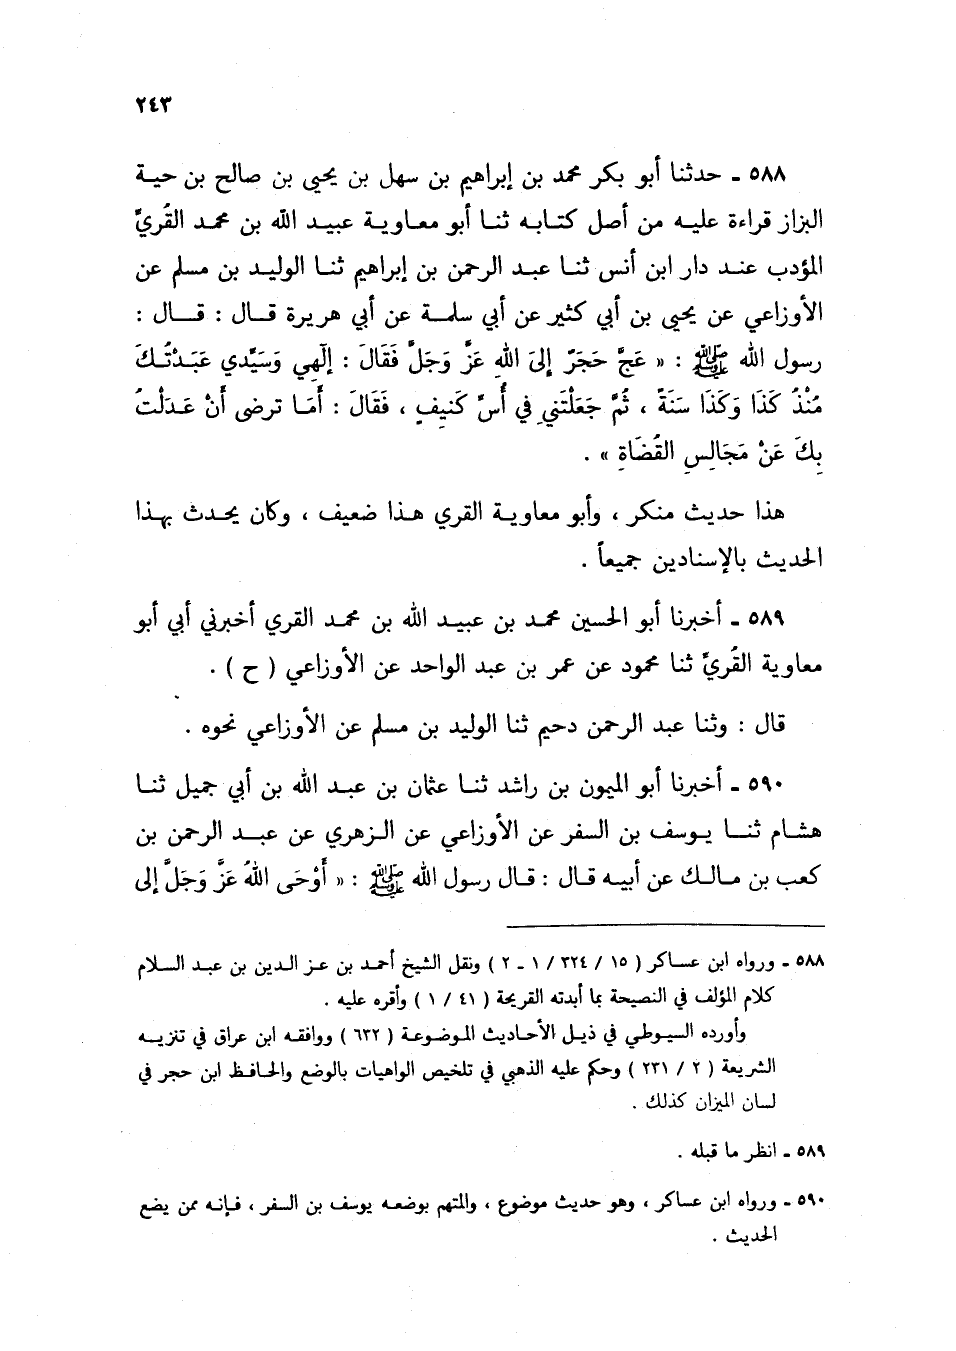 ٢٤٣
٥٨٨ ـ حدثنا أبو بكر محمد بن إبراهيم بن سهل بن يحيى بن صالح بن حية
البزاز قراءة عليه من أصل كتابه ثنا أبو معاوية عبيد الله بن محمد القُريّ
المؤدب عند دار ابن أنس ثنا عبد الرحمن بن إبراهيم ثنا الوليد بن مسلم عن
الأوزاعي عن يحيى بن أبي كثير عن أبي سلمة عن أبي هريرة قال : قال :
رسول الله ﷺ : « عَجَّ حَجَرٌ إِلىَ اللهِ عَزَّ وَجَلَّ فَقَالَ : إلٓهِي وَسَيِّدي عَبَدْتُكَ
مُنْذُ كَذَا وَكَذَا سَنَةً ، ثُمَّ جَعَلْتَنيِ في أُسِّ كَنيِفٍ ، فَقَالَ : أَمَا ترضى أَنْ عَدَلْتُ
بِكَ عَنْ مَجَالِسِ القُضَاةِ » .
هذا حديث منكر ، وأبو معاوية القري هذا ضعيف ، وكان يحدث بهذا
الحديث بالإسنادين جميعاً .
٥٨٩ ـ أخبرنا أبو الحسين محمد بن عبيد الله بن محمد القري أخبرني أبي أبو
معاوية القُريّ ثنا محمود عن عمر بن عبد الواحد عن الأوزاعي ( ح ) .
قال : وثنا عبد الرحمن دحيم ثنا الوليد بن مسلم عن الأوزاعي نحوه .
٥٩٠ ـ أخبرنا أبو الميمون بن راشد ثنا عثمان بن عبد الله بن أبي جميل ثنا
هشام ثنا يوسف بن السفر عن الأوزاعي عن الزهري عن عبد الرحمن بن
كعب بن مالك عن أبيه قال : قال رسول الله ﷺ : « أَوْحَى اللهُ عَزَّ وَجَلَّ إلى
٥٨٨ ـ ورواه ابن عساكر ( ١٥ / ٣٢٤ / ١ ـ ٢ ) ونقل الشيخ أحمد بن عز الدين بن عبد السلام
كلام المؤلف في النصيحة بما أبدته القريحة ( ٤١ / ١ ) وأقره عليه .
وأورده السيوطي في ذيل الأحاديث الموضوعة ( ٦٣٢ ) ووافقه ابن عراق في تنزيه
الشريعة ( ٢ / ٢٣١ ) وحكم عليه الذهبي في تلخيص الواهيات بالوضع والحافظ ابن حجر في
لسان الميزان كذلك .
٥٨٩ ـ انظر ما قبله .
٥٩٠ ـ ورواه ابن عساكر ، وهو حديث موضوع ، والمتهم بوضعه يوسف بن السفر ، فإنه ممن يضع
الحديث .